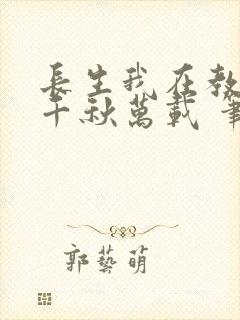 長生我在教
千秋萬載 筆
郭藝萌